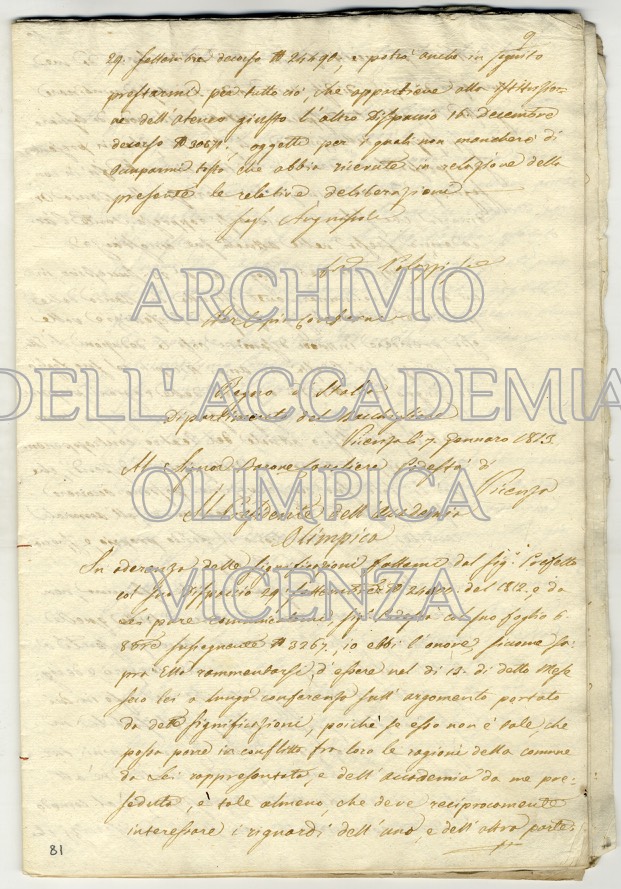 9
29. Settembre decorso N. 24490, e potrà anche in seguito
prestarmi per tutto ciò, che appartiene alla Istituzio-
ne dell'Ateneo giusto l'altro Dispaccio 16. Decembre
decorso N. 30671. oggetti per i quali non mancherò di
occuparmi tosto che abbia ricevute in relazione della
presente le relative deliberazioni
Anguissola
ARCHIVIO
Per copia conforme
DELL' ACCADEMIA
Regno d'Italia
Dipartimento del Bacchiglione
Vicenza li 7. Gennaro 1813.
Al Signor Barone Cavaliere Podestà di
Vicenza
OLIMPICA
Il Presidente dell'Accademia
Olimpica
In aderenza delle significazioni fattemi dal Sig. Prefetto
col suo Dispaccio 29. Settembre N. del 1812. e da
Lei pure comunicatemi, Sig. Podestà col suo foglio 6.
8bre susseguente N. 3267, io ebbi l'onore, siccome sa-
prà Ella rammentarsi, d'essere nel dì 13. di detto Mese
seco lei a lungo conferenza sull'argomento portato
VICENZA
da dette significazioni, poichè se esso non è tale, che
possa porre in conflitto fra loro le ragioni della comune
da Lei rappresentata, e dell'Accademia da me pre-
seduta, è tale almeno, che deve reciprocamente
interessare i riguardi dell'una, e dell'altra parte.
81